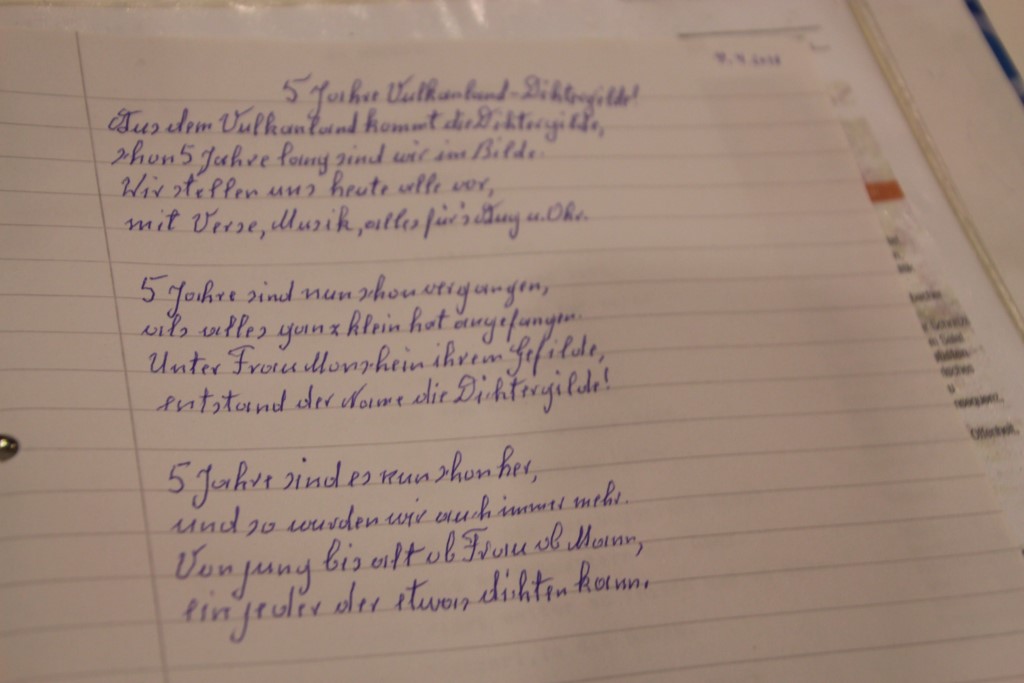 5 Jahre Vulkanland-Dichtergilde!
Aus dem Vulkanland kommt die Dichtergilde,
schon 5 Jahre lang sind wir im Bilde.
Wir stellen uns heute alle vor,
mit Verse, Musik, alles für's Aug u. Ohr.
5 Jahre sind nun schon vergangen,
als alles ganz klein hat angefangen.
Unter Frau Monschein ihrem Gefilde,
entstand der Name die Dichtergilde!
5 Jahre sind es nun schon her,
und so wurden wir auch immer mehr.
Von jung bis alt ob Frau ob Mann,
ein jeder der etwas dichten kann.
Offenheit,